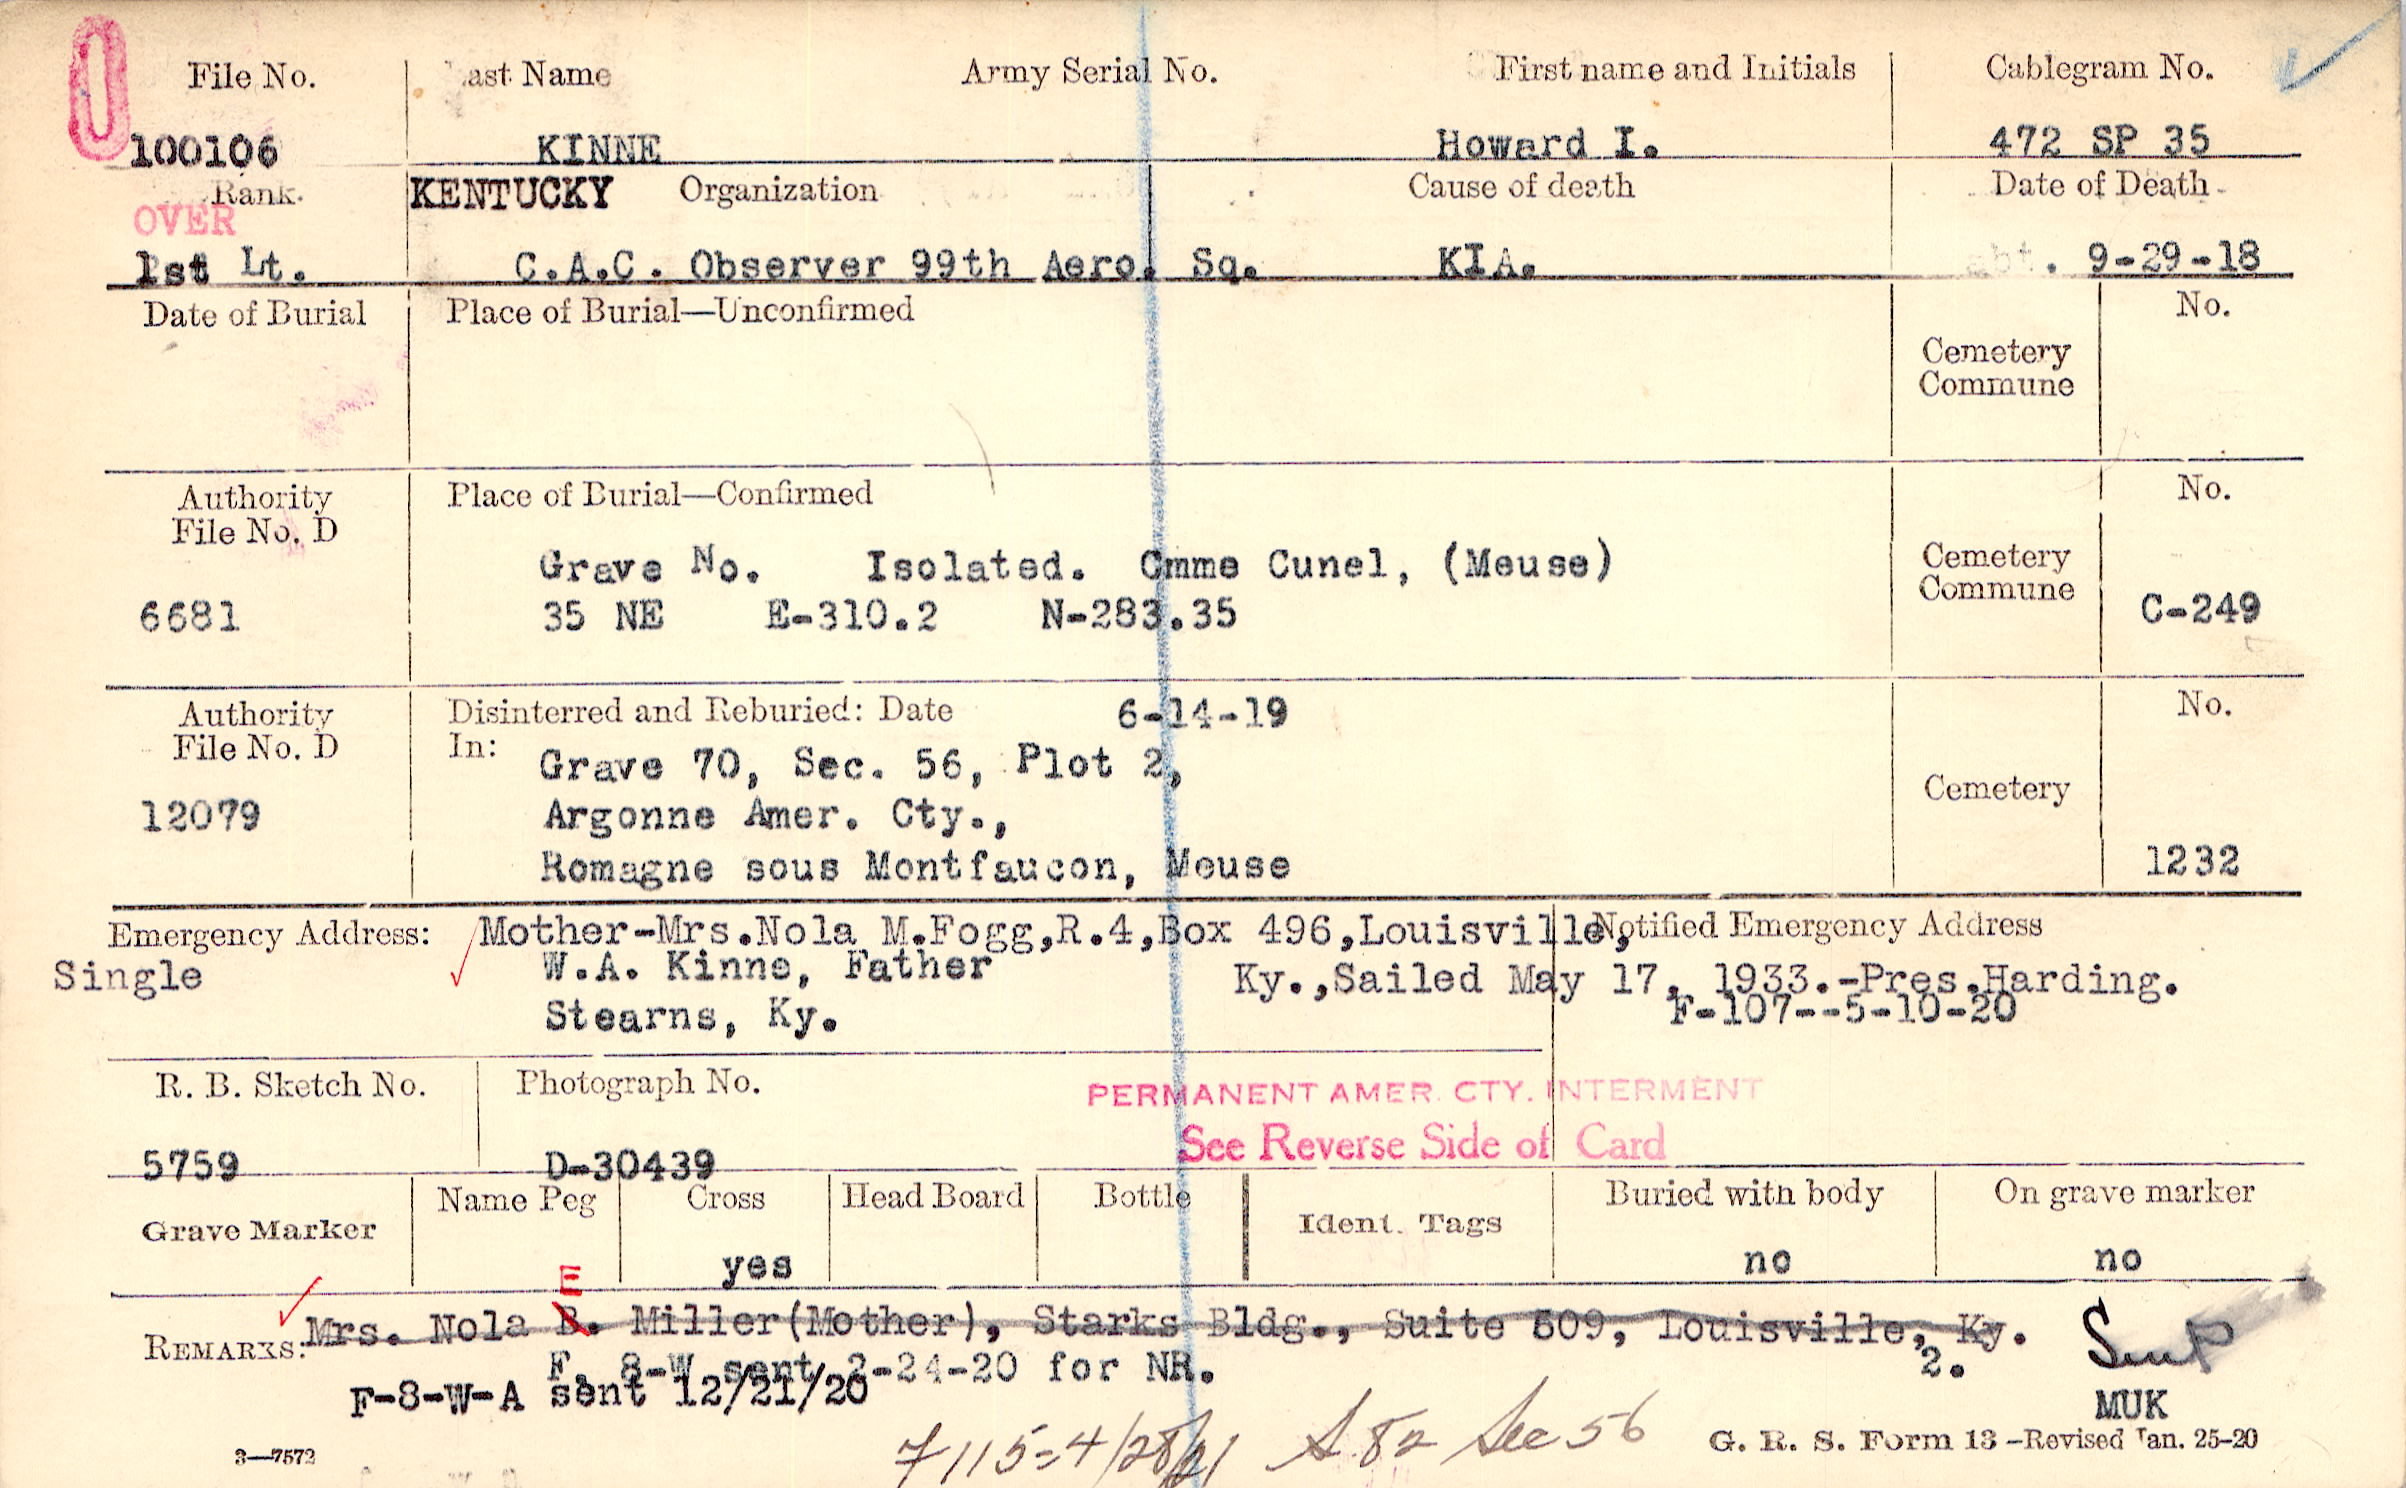 File No. Last Name Army Serial No. First name and Initials Cablegram No.
100106 KINNE Howard I. 472 SP 35
Rank. KENTUCKY Organization Cause of death Date of Death
OVER
1st Lt. C.A.C. Observer 99th Aero. Sq. KIA. abt. 9-29-18
Date of Burial Place of Burial—Unconfirmed No.
Cemetery
Commune
Authority Place of Burial—Confirmed No.
File No. D
Grave No. Isolated. Cmme Cunel, (Meuse) Cemetery
Commune
6681 35 NE E-310.2 N-283.35 C-249
Authority Disinterred and Reburied: Date 6-14-19 No.
File No. D In:
Grave 70, Sec. 56, Plot 2,
Cemetery
12079 Argonne Amer. Cty.,
Romagne sous Montfaucon, Meuse 1232
Emergency Address: Mother-Mrs.Nola M.Fogg,R.4,Box 496,Louisville, Notified Emergency Address
Single W.A. Kinne, Father Ky.,Sailed May 17, 1933.-Pres.Harding.
Stearns, Ky. F-107--5-10-20
R. B. Sketch No. Photograph No. PERMANENT AMER. CTY. INTERMENT
See Reverse Side of Card
5759 D-30439
Name Peg Cross Head Board Bottle Buried with body On grave marker
Grave Marker Ident. Tags
yes no no
E
REMARKS: Mrs. Nola B. Miller(Mother), Starks Bldg., Suite 509, Louisville, Ky.
F. 8-W sent 2-24-20 for NR. 2.
F-8-W-A sent 12/21/20 MUK
7115=4/28/21 S.82 Sec 56 G. R. S. Form 13-Revised Jan. 25-20
3—7572